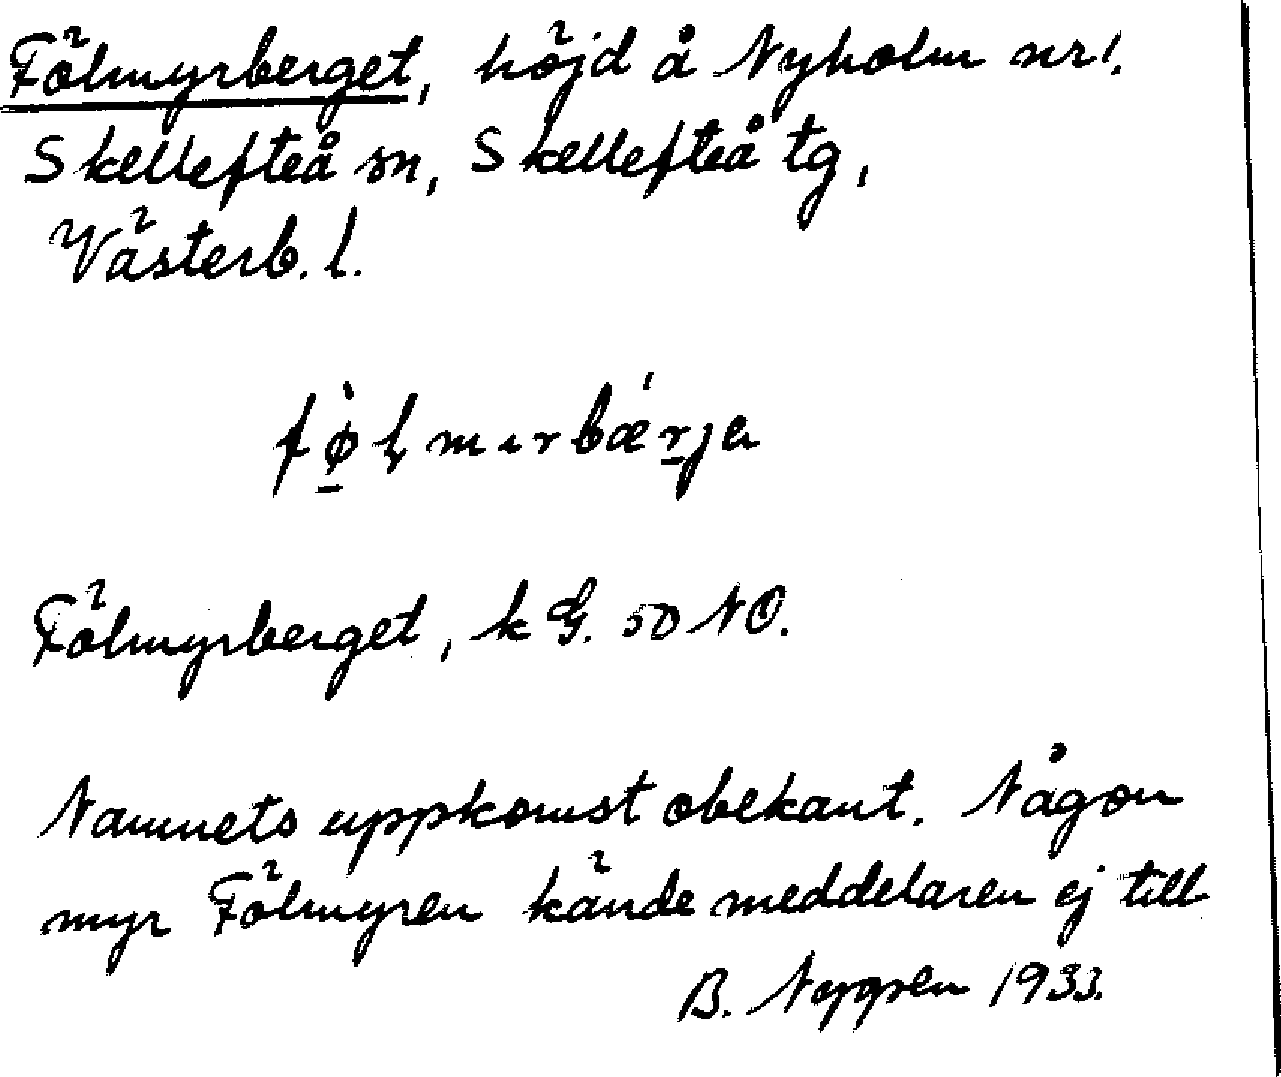 Fölmyrberget, höjd å Nyholm nr 1.
Skellefteå sn, Skellefteå tg,
Västerb. l.
Fölmyrberget, k G. 50 NO.
Namnets uppkomst obekant. Någon
myr Fölmyren kände meddelaren ej till
B. Nygren 1933.